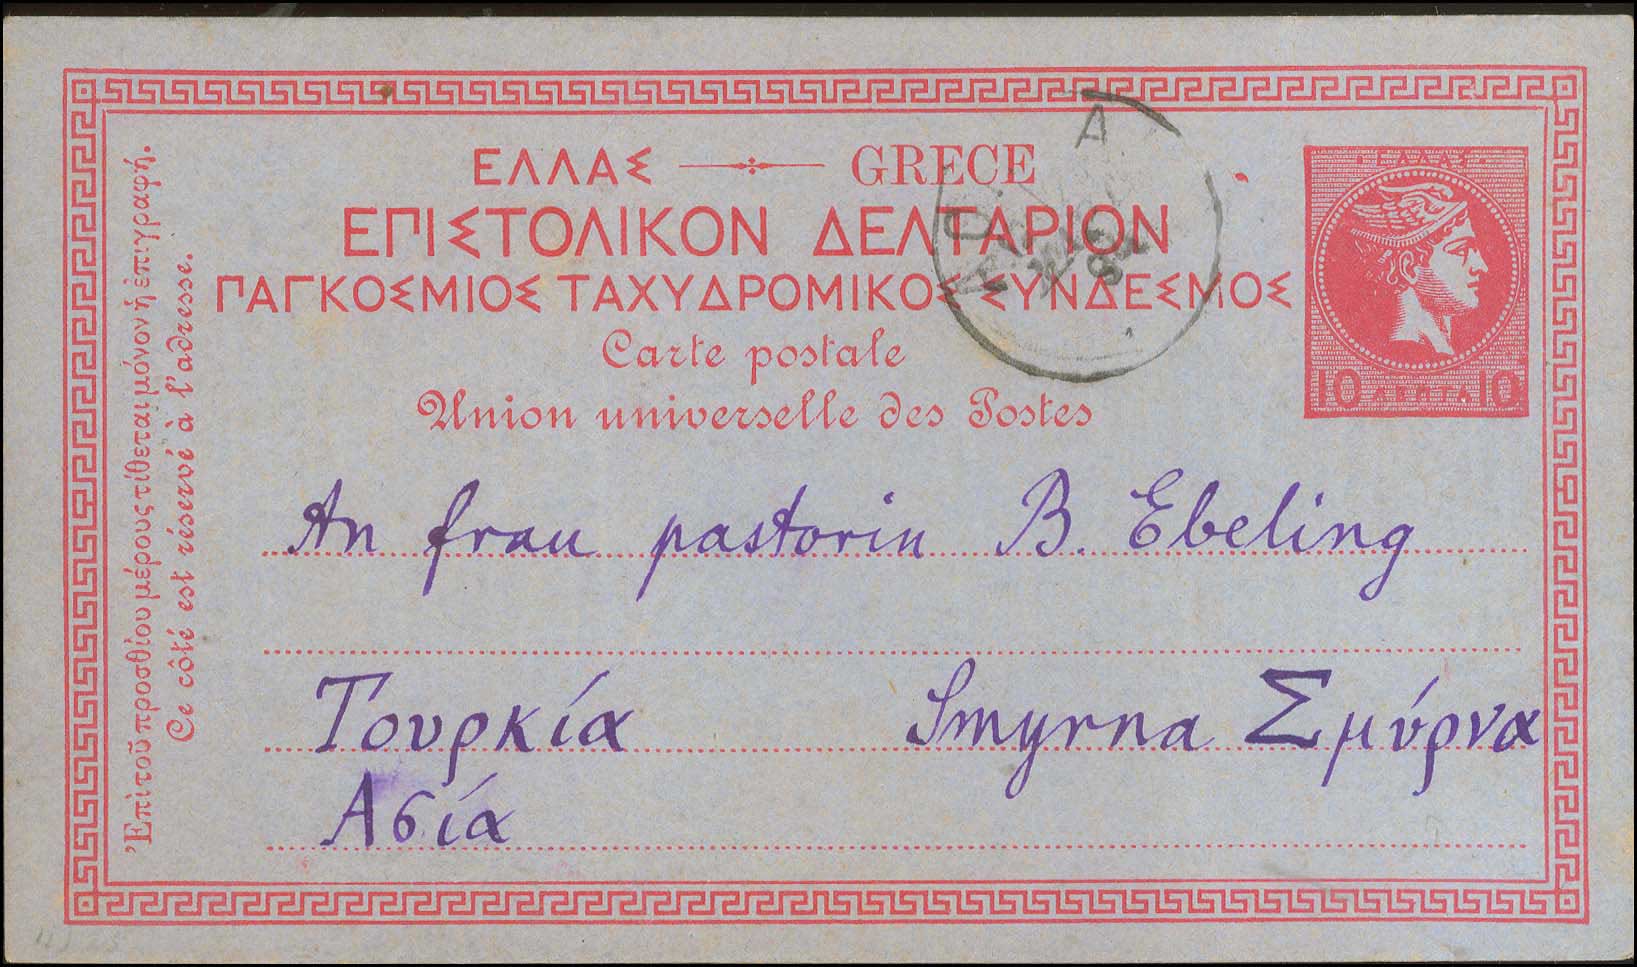 ΕΛΛΑΣ GRECE
ΕΠΙΣΤΟΛΙΚΟΝ ΔΕΛΤΑΡΙΟΝ
ΠΑΓΚΟΣΜΙΟΣ ΤΑΧΥΔΡΟΜΙΚΟΣ ΣΥΝΔΕΣΜΟΣ
Carte postale
Union universelle des Postes
10 ΛΕΠΤΑ 10
Ἐπὶ τοῦ προσθίου μέρους τίθεται μόνον ἡ ἐπιγραφή.
Ce côté est réservé à l'adresse.
An frau pastorin B. Ebeling
Τουρκία Smyrna Σμύρνα
Ασία